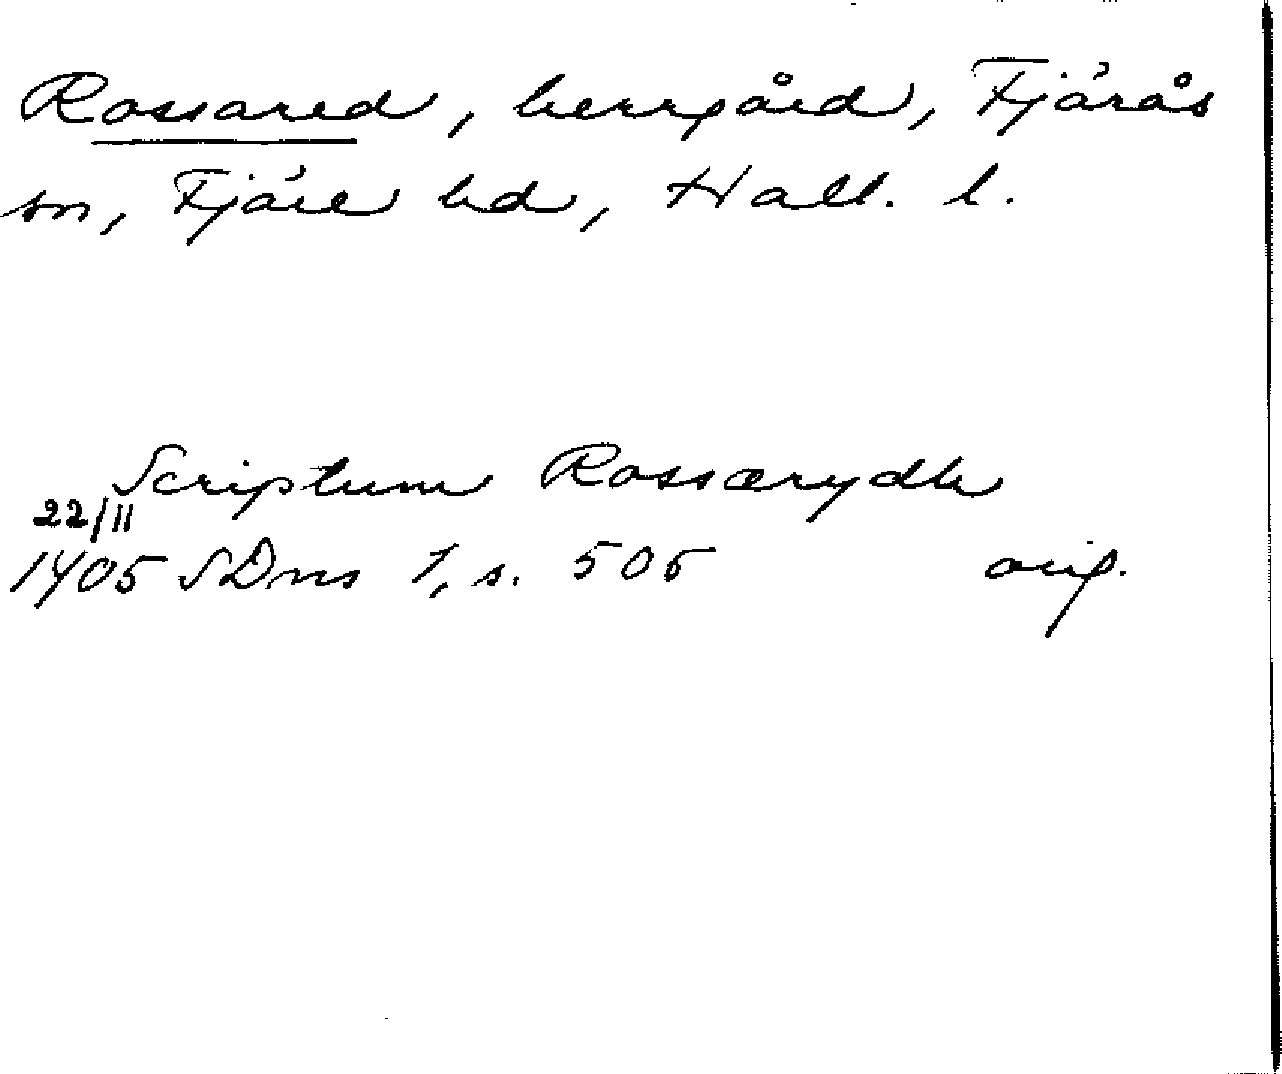 Rossared, herrgård, Fjärås
sn, Fjäre hd, Hall. l.
Scriptum Rossærydh
22/11
1405 SDns 1, s. 505 orig.